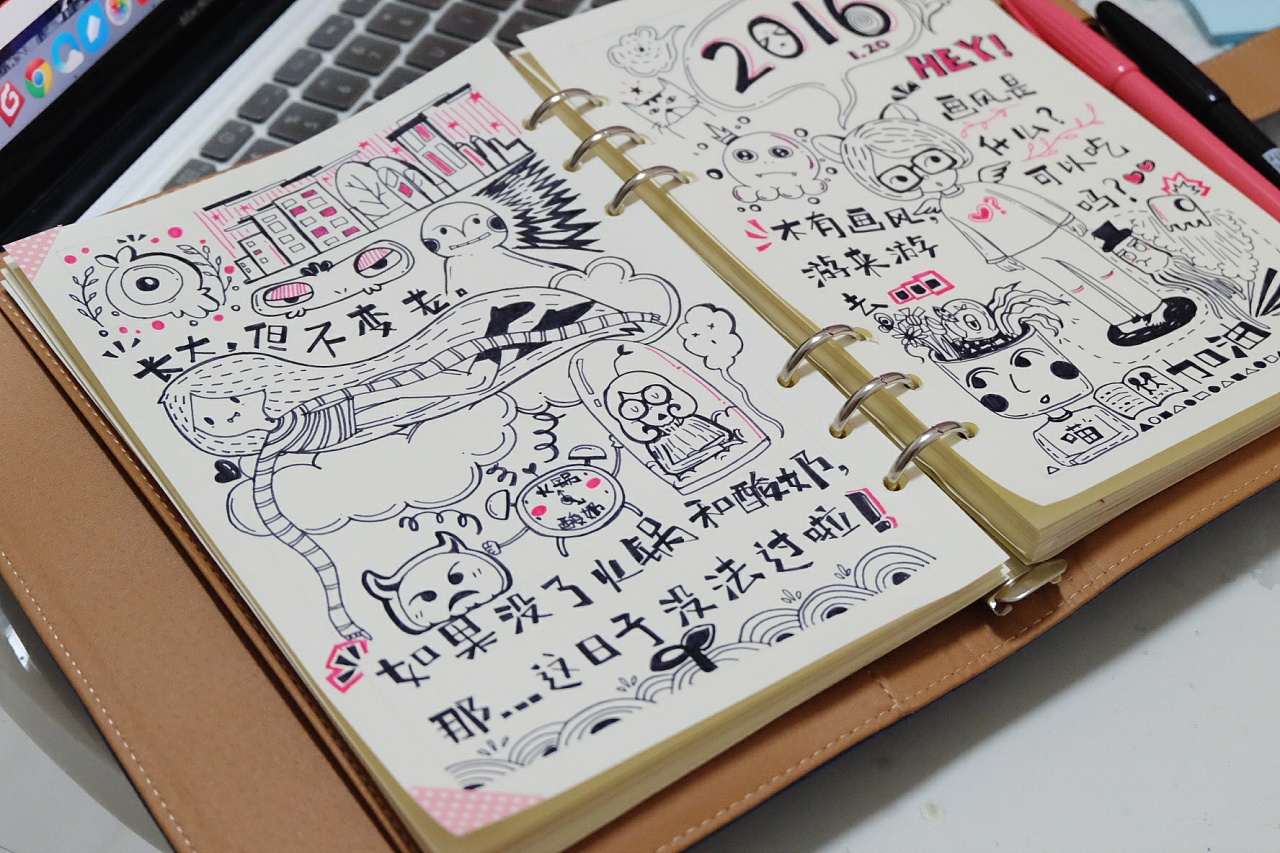 长大，但不变老。
火锅
酸奶
如果没了火锅和酸奶，
那...这日子没法过啦！
2016
1.20
HEY!
画风是
什么？
可以吃
吗？
木有画风，
游来游
去
加油
喵